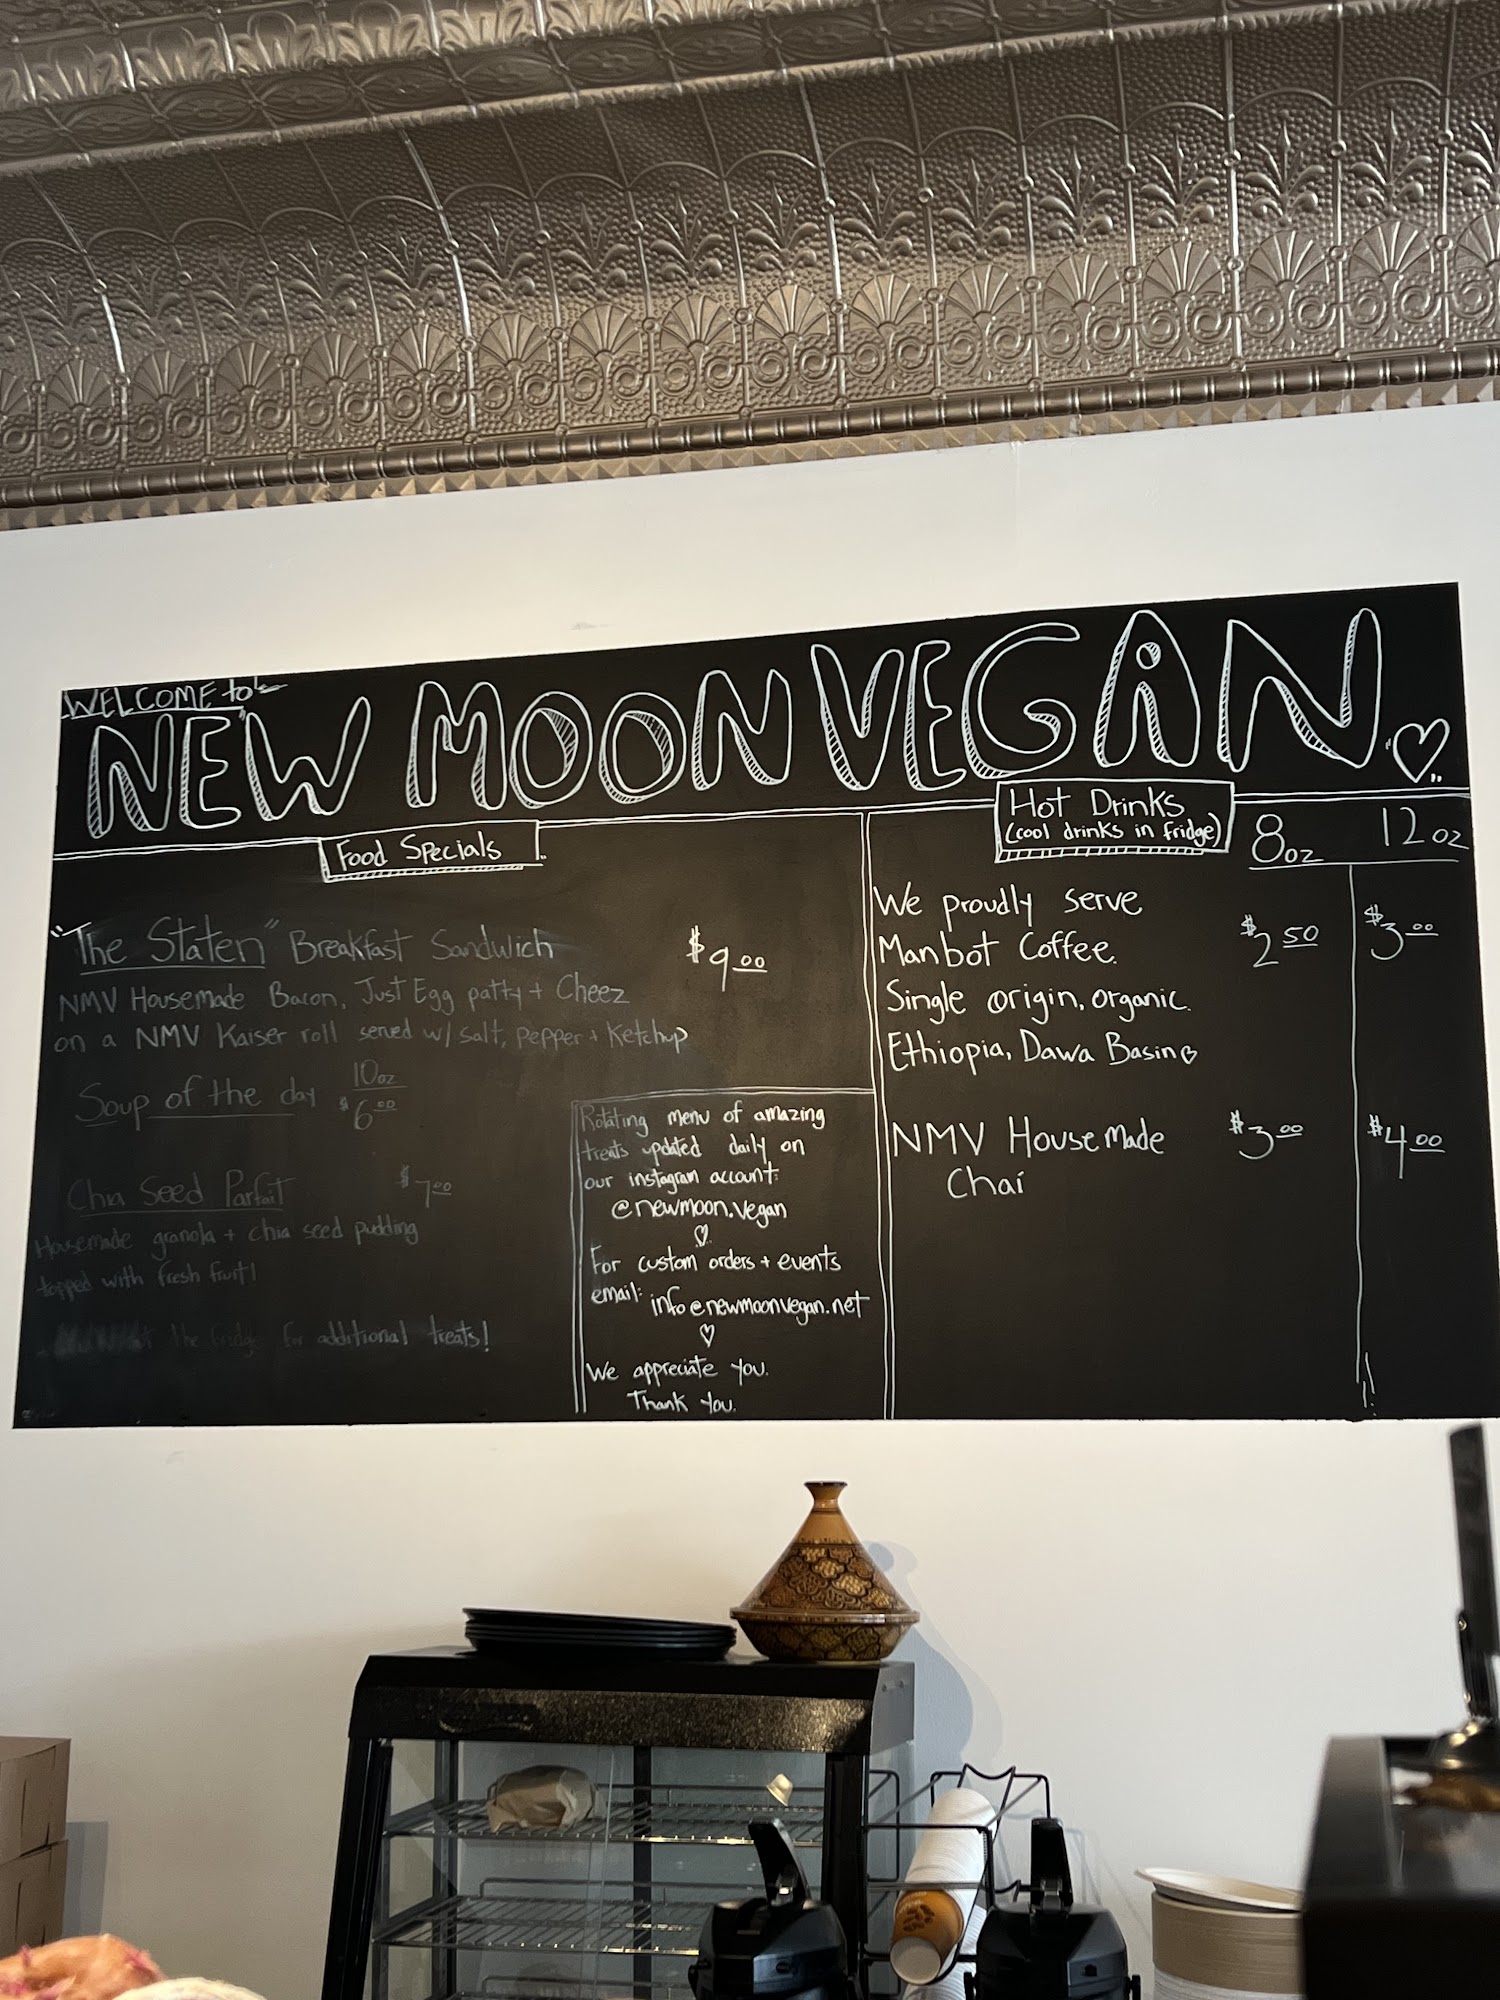 WELCOME to
NEW MOON VEGAN
Food Specials
"The Staten" Breakfast Sandwich $9.00
NMV Housemade Bacon, Just Egg patty + Cheez
on a NMV Kaiser roll served w/ salt, pepper + Ketchup
10oz
Soup of the day $6.00
Chia Seed Parfait $7.00
Housemade granola + chia seed pudding
topped with fresh fruit!
the fridge for additional treats!
Rotating menu of amazing
treats updated daily on
our instagram account:
@newmoon.vegan
For custom orders + events
email: info@newmoonvegan.net
We appreciate you.
Thank you.
Hot Drinks
(cool drinks in fridge)
8oz 12oz
We proudly serve
Manbot Coffee. $2.50 $3.00
Single origin, organic.
Ethiopia, Dawa Basin
NMV House Made $3.00 $4.00
Chai